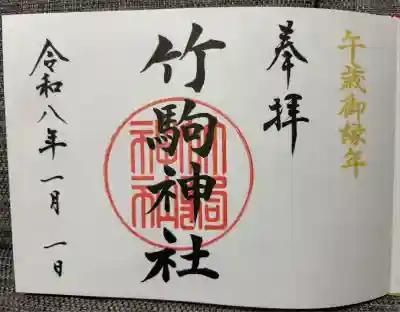 午歳御縁年
奉拝
竹駒神社
竹駒神社
令和八年一月一日